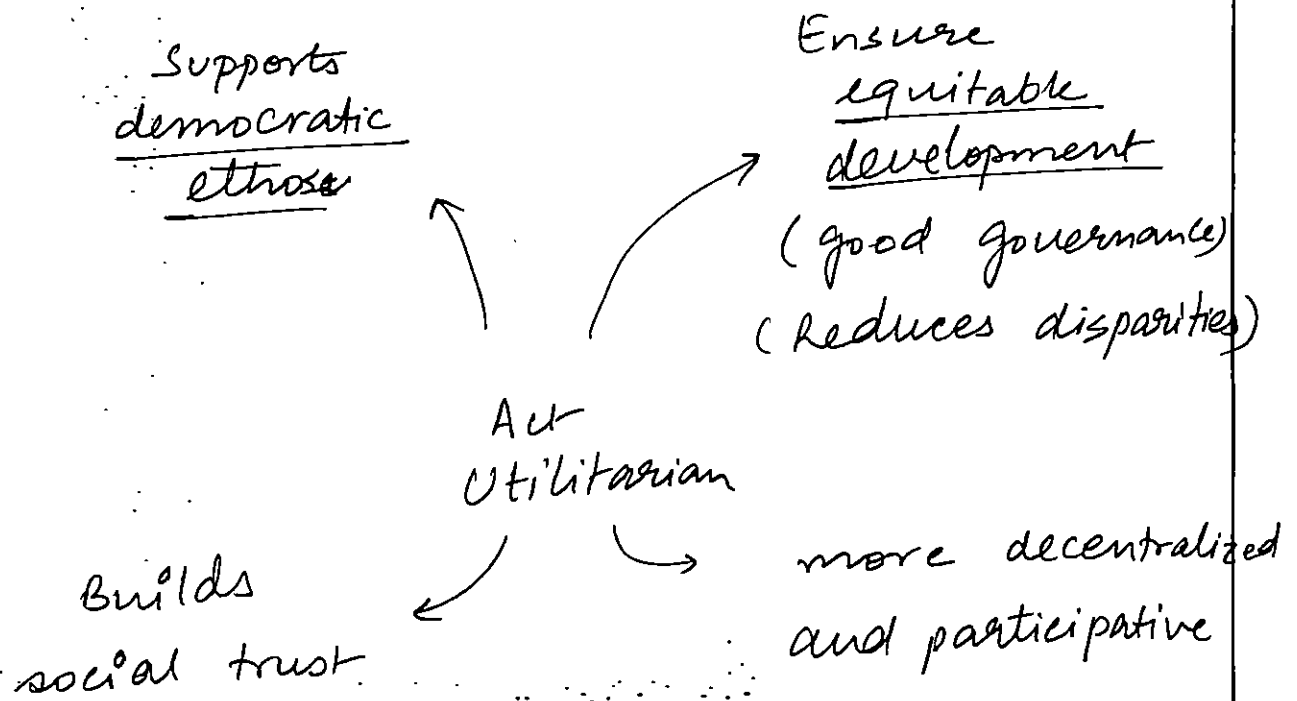 Supports
democratic
ethose
Ensure
equitable
development
(good governance)
(Reduces disparities)
Act
Utilitarian
Builds
social trust
more decentralized
and participative